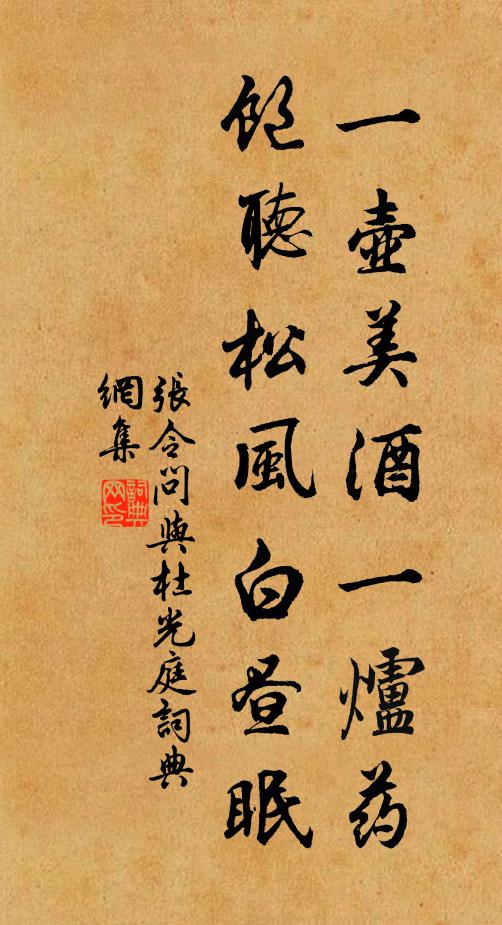 一壺美酒一爐药
飽聽松風白昼眠
張令问與杜光庭詞典
網集
詞典
网印